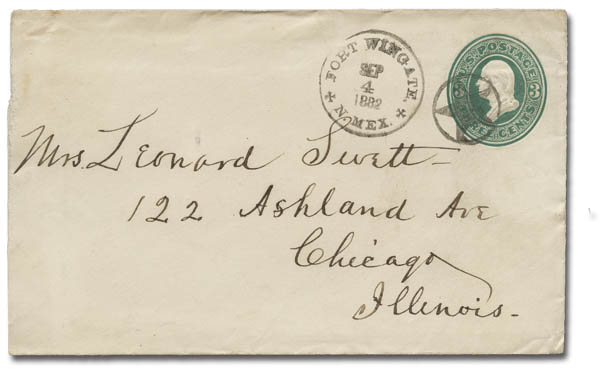 FORT WINGATE.
SEP
4
1882
N. MEX.
U.S. POSTAGE
3 3
THREE CENTS
Mrs. Leonard Swett -
122 Ashland Ave
Chicago
Illinois.-